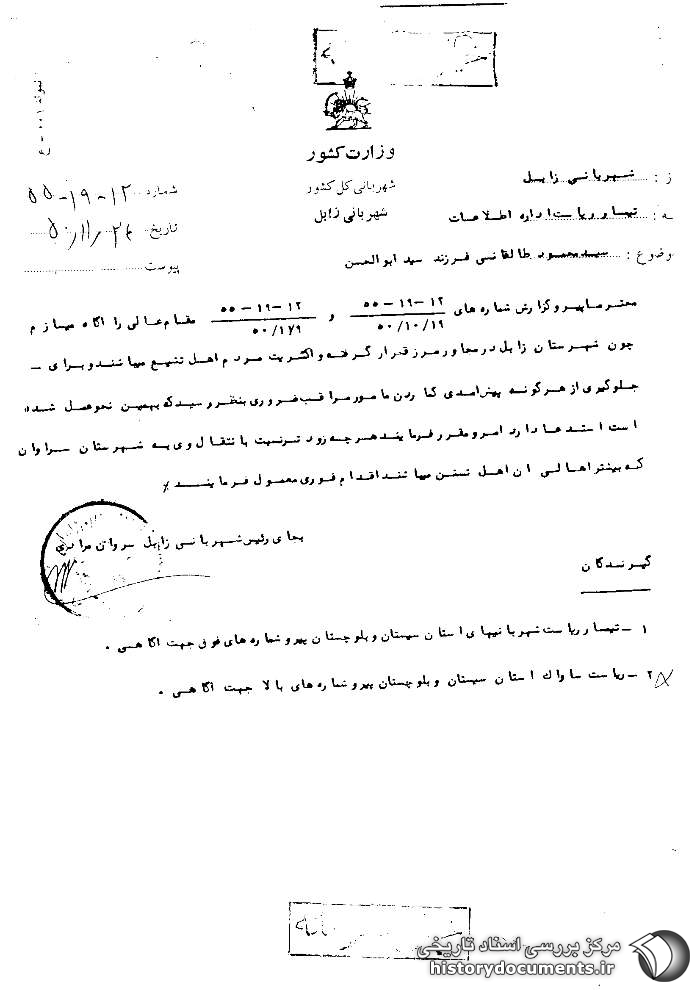 نمونه ۰۰۱ - ع
وزارت کشور
شهربانی کل کشور
شهربانی زابل
شماره ۱۲-۱۹-۵۵
تاریخ
پیوست
از : شهربانی زابل
به : تیمار ریاست اداره اطلاعات
موضوع : سید محمود طالقانی فرزند سید ابوالحسن
محترما پیرو گزارش شماره های ۱۲-۱۹-۵۵ / ۵۰/۱۰/۱۹ و ۱۲-۱۹-۵۵ / ۵۰/۱۷۹ مقام عالی را آگاه میسازم
چون شهرستان زابل در مجاور مرز قرار گرفته و اکثریت مردم اهل تشیع میباشند و برای -
جلوگیری از هرگونه پیش‌امدی گماردن مامور مراقب ضروری بنظر رسید که بهمین نحو عمل شده
است استدعا دارد امر و مقرر فرمایند هرچه زودتر نسبت با نتقال وی به شهرستان سراوان
که بیشتر اهالی ان اهل تسنن میباشند اقدام فوری معمول فرمایند
بجای رئیس شهربانی زابل سروان
گیرندگان
۱ - تیمسار ریاست شهربانیهای استان سیستان و بلوچستان پیرو شماره های فوق جهت اگاهی .
۲ - ریاست ساواک استان سیستان و بلوچستان پیرو شماره های بالا جهت اگاهی .
مرکز بررسی اسناد تاریخی
historydocuments.ir